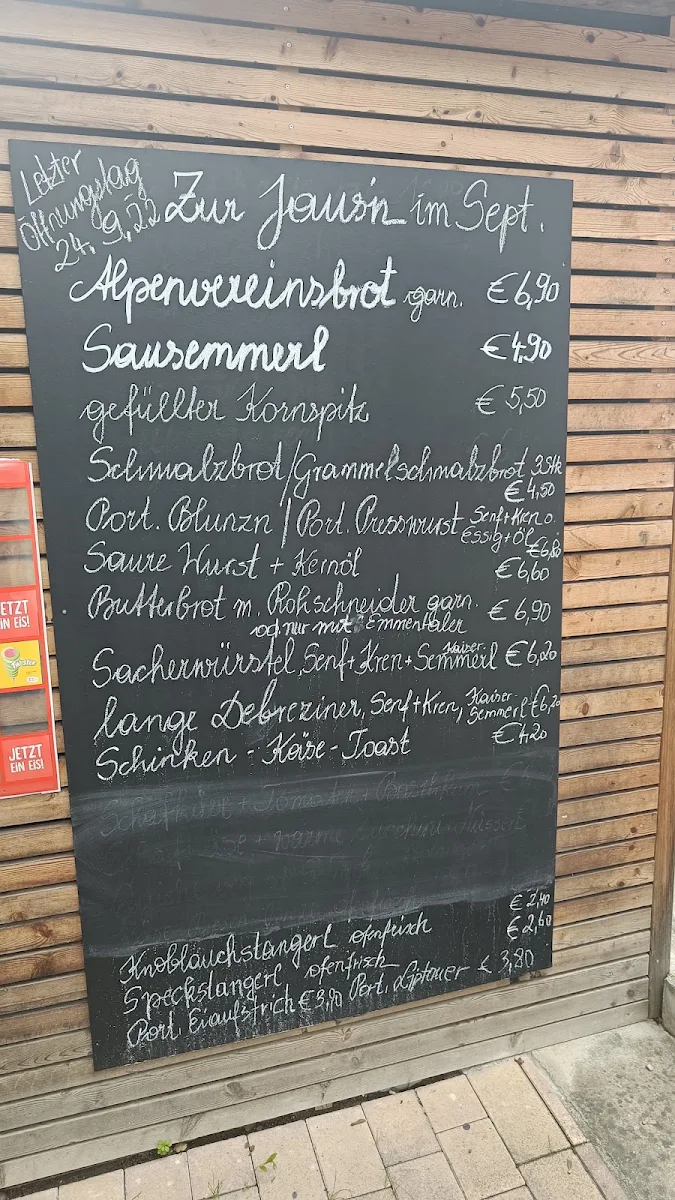 Letzter
Öffnungstag
24.9.22
Zur Jaus'n im Sept.
Alpenvereinsbrot garn. €6,90
Sausemmerl €4,90
gefüllter Kornspitz €5,50
Schmalzbrot/Grammelschmalzbrot 3Stk
€4,50
Port. Blunzn / Port. Presswurst Senf+Kren o.
Essig+Öl €6,80
Saure Wurst + Kernöl €6,60
Butterbrot m. Rohschneider garn. €6,90
od nur mit Emmentaler
Sacherwürstel, Senf+Kren+Kaiser
Semmerl €6,20
lange Debreziner, Senf+Kren, Kaiser-
Semmerl €6,20
Schinken-Käse-Toast €4,20
Schafkäse + Tomaten + Basilikum
Knoblauchstangerl ofenfrisch €2,40
Speckstangerl ofenfrisch €2,60
Port. Eiaufstrich €3,90 Port. Liptauer €3,80
JETZT
EIN EIS!
Twister
JETZT
EIN EIS!